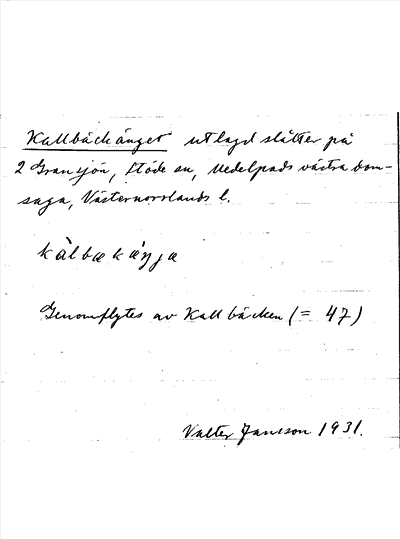 Kallbäckänget utlagd slåtter på
2 Gransjön, Stöde sn, Medelpads västra dom-
saga, Västernorrlands l.
kàlbækæ̀ŋja
Genomflytes av Kallbäcken (= 47)
Valter Jansson 1931.